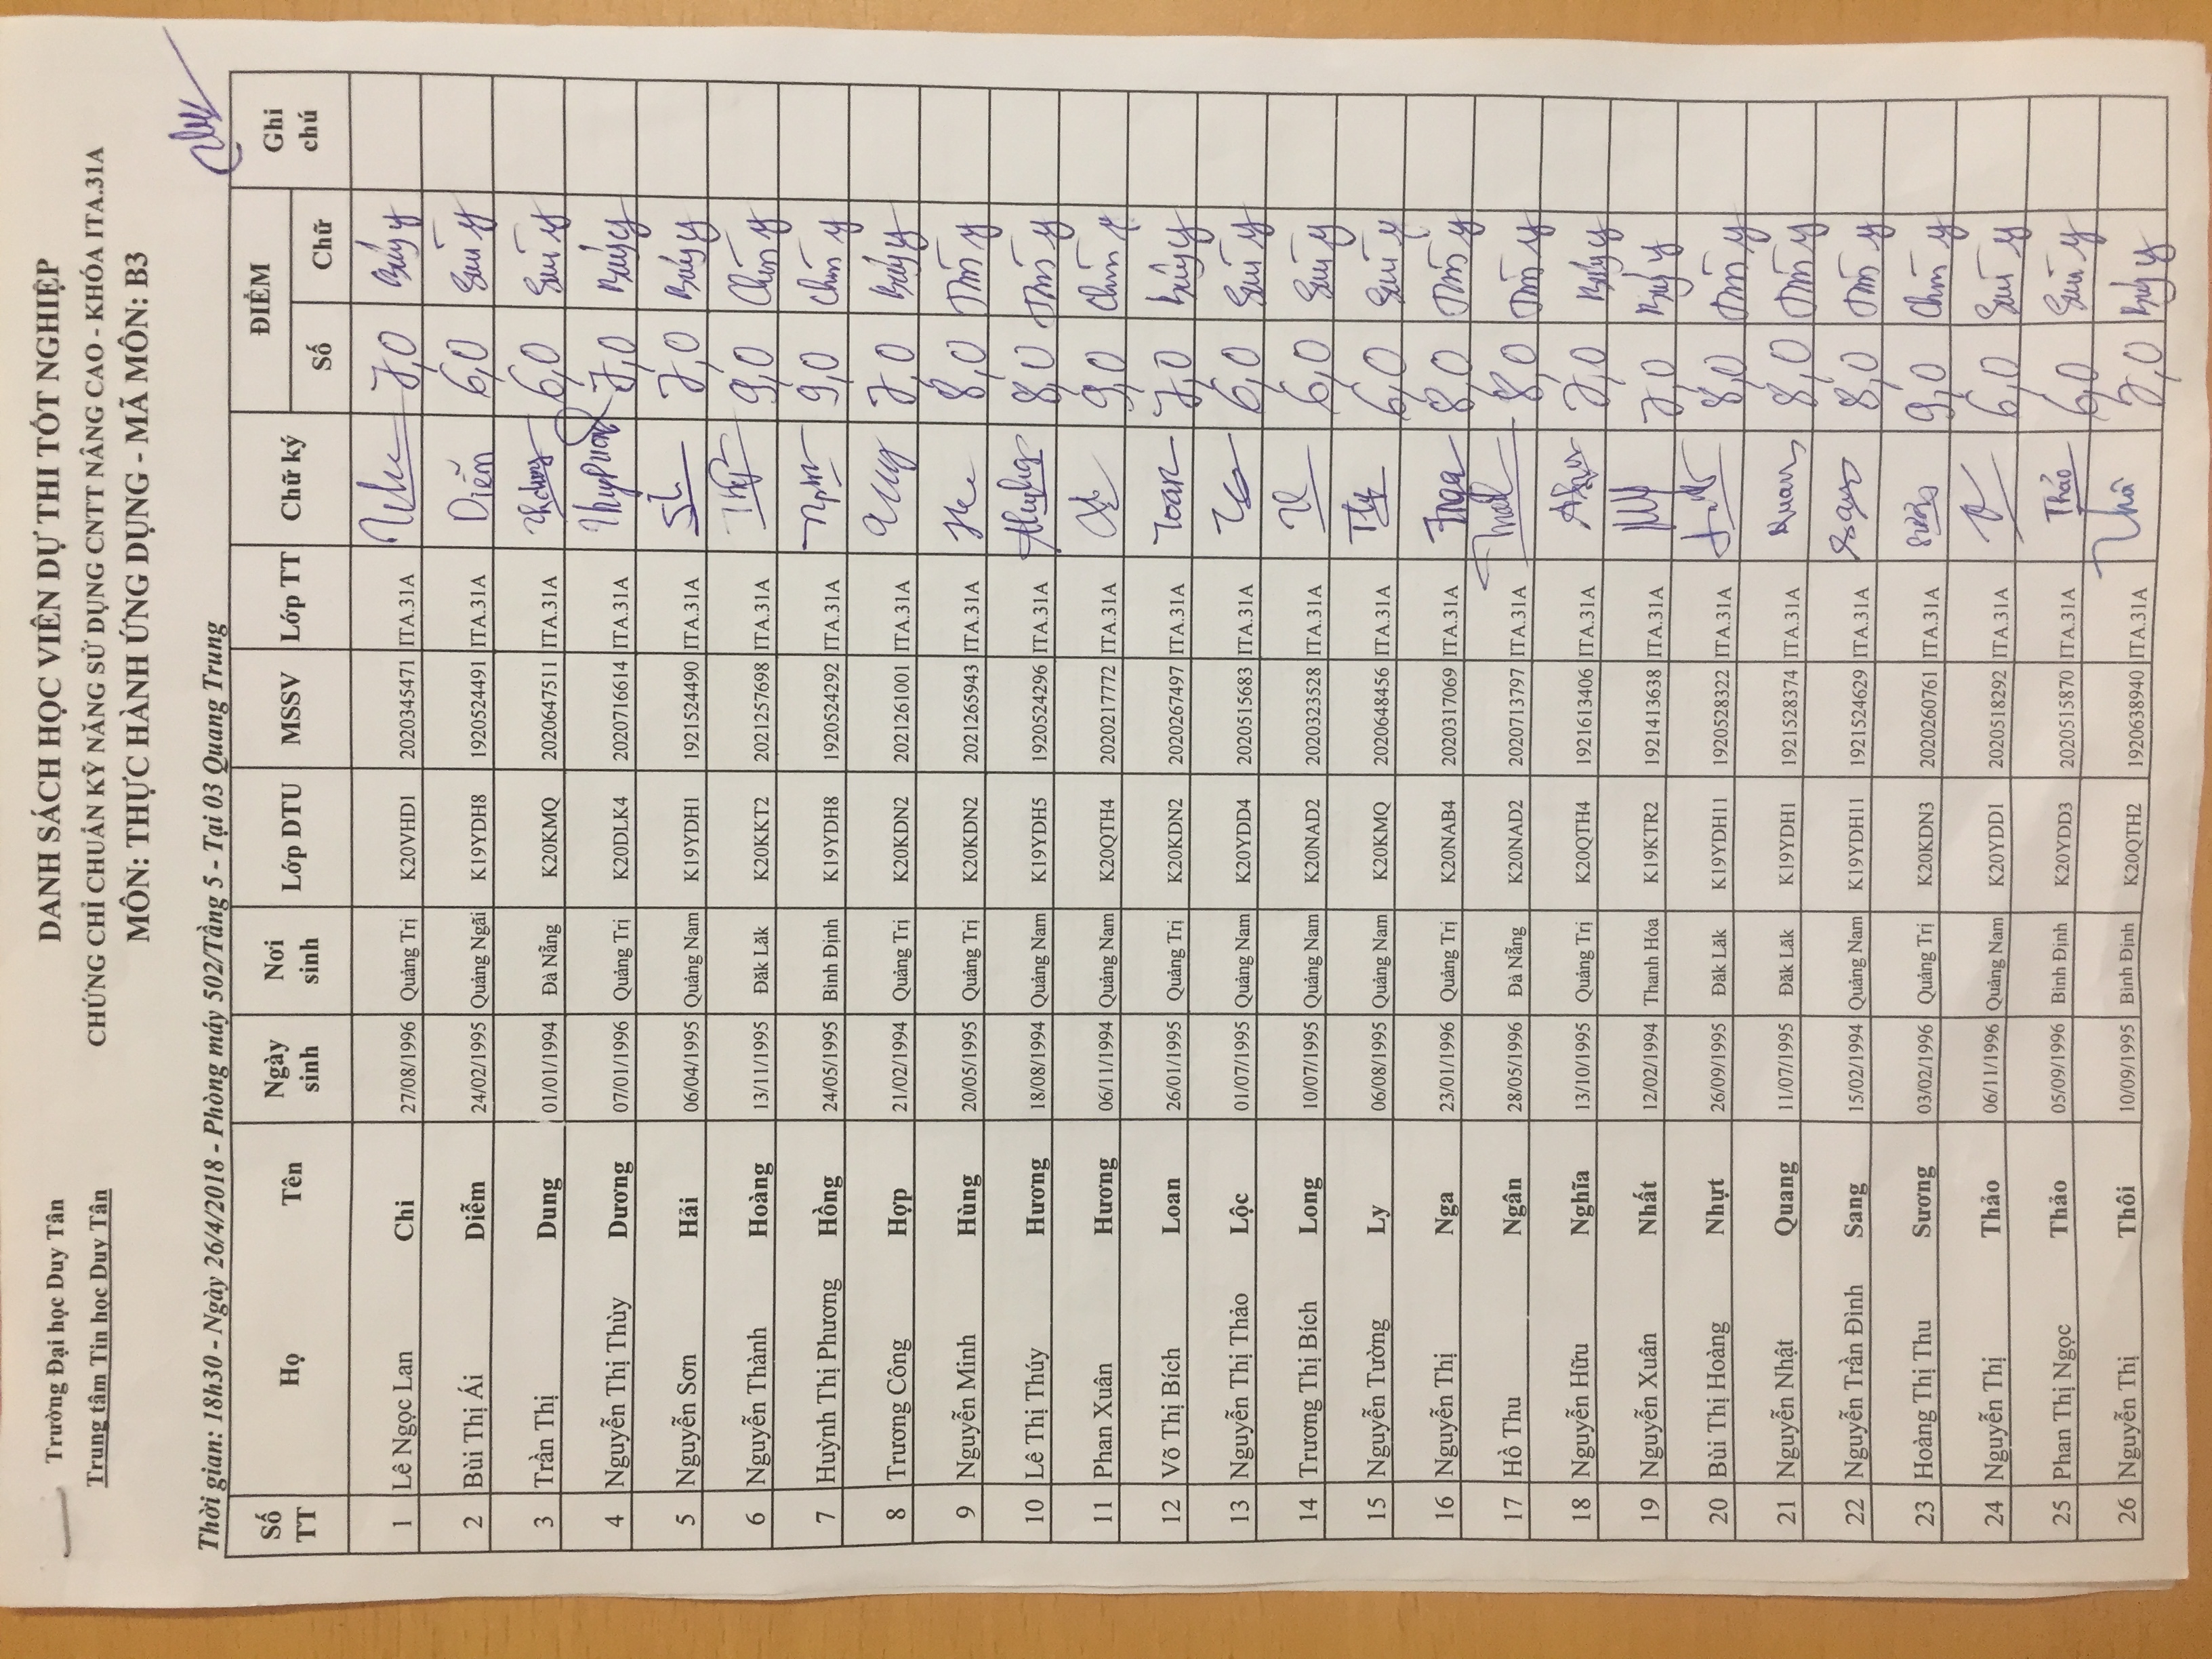 Trường Đại học Duy Tân
Trung tâm Tin học Duy Tân
DANH SÁCH HỌC VIÊN DỰ THI TỐT NGHIỆP
CHỨNG CHỈ CHUẨN KỸ NĂNG SỬ DỤNG CNTT NÂNG CAO - KHÓA ITA.31A
MÔN: THỰC HÀNH ỨNG DỤNG - MÃ MÔN: B3
Thời gian: 18h30 - Ngày 26/4/2018 - Phòng máy 502/Tầng 5 - Tại 03 Quang Trung
Số TT Họ Tên Ngày sinh Nơi sinh Lớp DTU MSSV Lớp TT Chữ ký ĐIỂM Ghi chú
Số Chữ
1 Lê Ngọc Lan Chi 27/08/1996 Quảng Trị K20VHD1 2020345471 ITA.31A 7,0 Bảy y
2 Bùi Thị Ái Diễm 24/02/1995 Quảng Ngãi K19YDH8 1920524491 ITA.31A Diễm 6,0 Sáu y
3 Trần Thị Dung 01/01/1994 Đà Nẵng K20KMQ 2020647511 ITA.31A 6,0 Sáu y
4 Nguyễn Thị Thùy Dương 07/01/1996 Quảng Trị K20DLK4 2020716614 ITA.31A 7,0 Bảy y
5 Nguyễn Sơn Hải 06/04/1995 Quảng Nam K19YDH1 1921524490 ITA.31A 7,0 Bảy y
6 Nguyễn Thành Hoàng 13/11/1995 Đăk Lăk K20KKT2 2021257698 ITA.31A 9,0 Chín y
7 Huỳnh Thị Phương Hồng 24/05/1995 Bình Định K19YDH8 1920524292 ITA.31A 9,0 Chín y
8 Trương Công Hợp 21/02/1994 Quảng Trị K20KDN2 2021261001 ITA.31A 7,0 Bảy y
9 Nguyễn Minh Hùng 20/05/1995 Quảng Trị K20KDN2 2021265943 ITA.31A 8,0 Tám y
10 Lê Thị Thúy Hương 18/08/1994 Quảng Nam K19YDH5 1920524296 ITA.31A 8,0 Tám y
11 Phan Xuân Hương 06/11/1994 Quảng Nam K20QTH4 2020217772 ITA.31A 9,0 Chín y
12 Võ Thị Bích Loan 26/01/1995 Quảng Trị K20KDN2 2020267497 ITA.31A Loan 7,0 Bảy y
13 Nguyễn Thị Thảo Lộc 01/07/1995 Quảng Nam K20YDD4 2020515683 ITA.31A 6,0 Sáu y
14 Trương Thị Bích Long 10/07/1995 Quảng Nam K20NAD2 2020323528 ITA.31A 6,0 Sáu y
15 Nguyễn Tường Ly 06/08/1995 Quảng Nam K20KMQ 2020648456 ITA.31A 6,0 Sáu y
16 Nguyễn Thị Nga 23/01/1996 Quảng Trị K20NAB4 2020317069 ITA.31A Nga 8,0 Tám y
17 Hồ Thu Ngân 28/05/1996 Đà Nẵng K20NAD2 2020713797 ITA.31A 8,0 Tám y
18 Nguyễn Hữu Nghĩa 13/10/1995 Quảng Trị K20QTH4 1921613406 ITA.31A 7,0 Bảy y
19 Nguyễn Xuân Nhất 12/02/1994 Thanh Hóa K19KTR2 1921413638 ITA.31A 7,0 Bảy y
20 Bùi Thị Hoàng Nhựt 26/09/1995 Đăk Lăk K19YDH11 1920528322 ITA.31A 8,0 Tám y
21 Nguyễn Nhật Quang 11/07/1995 Đăk Lăk K19YDH1 1921528374 ITA.31A Quang 8,0 Tám y
22 Nguyễn Trần Đình Sang 15/02/1994 Quảng Nam K19YDH11 1921524629 ITA.31A Sang 8,0 Tám y
23 Hoàng Thị Thu Sương 03/02/1996 Quảng Trị K20KDN3 2020260761 ITA.31A 9,0 Chín y
24 Nguyễn Thị Thảo 06/11/1996 Quảng Nam K20YDD1 2020518292 ITA.31A 6,0 Sáu y
25 Phan Thị Ngọc Thảo 05/09/1996 Bình Định K20YDD3 2020515870 ITA.31A Thảo 6,0 Sáu y
26 Nguyễn Thị Thôi 10/09/1995 Bình Định K20QTH2 1920638940 ITA.31A Thôi 7,0 Bảy y